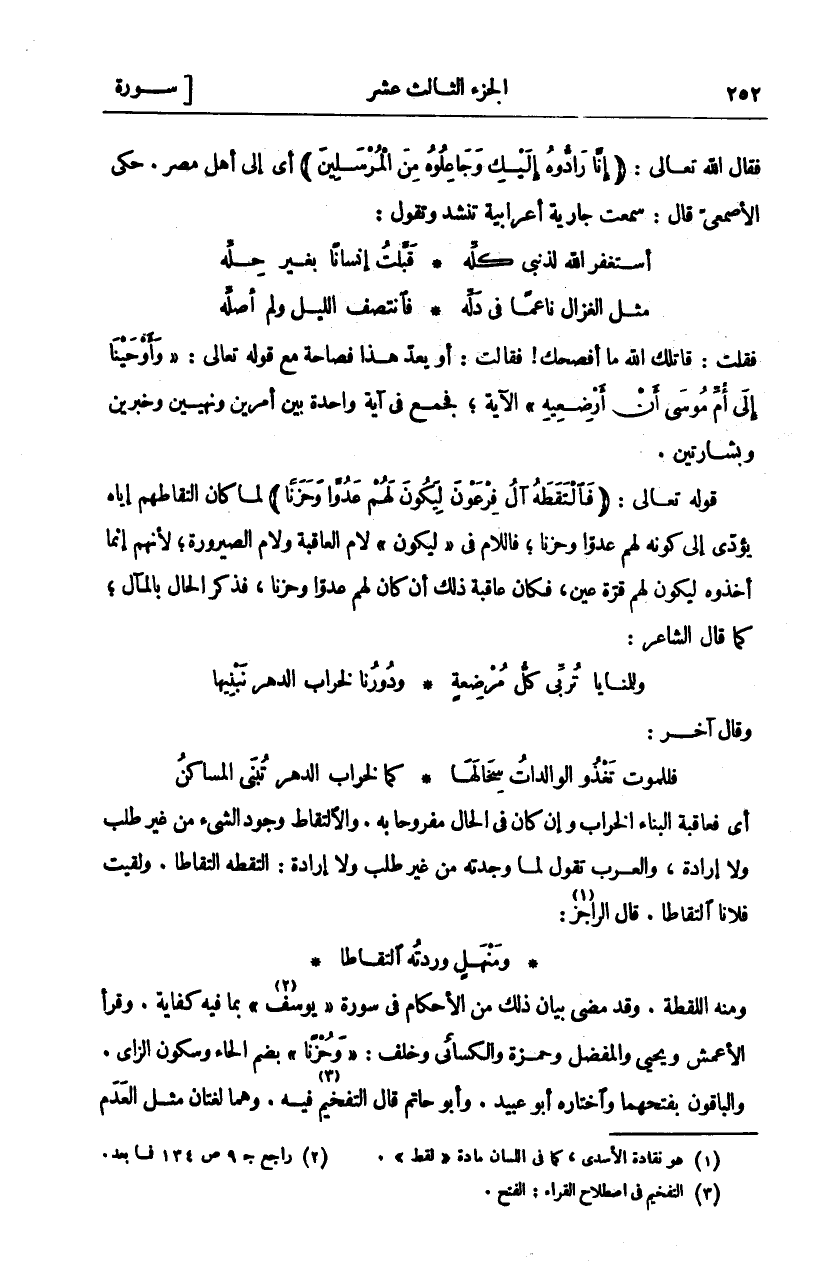 ٢٥٢ الجزء الثالث عشر [ سورة
فقال الله تعالى : ﴿ إِنَّا رَادُّوهُ إِلَيْكِ وَجَاعِلُوهُ مِنَ الْمُرْسَلِينَ ﴾ أى إلى أهل مصر . حكى
الأصمعىّ قال : سمعت جارية أعرابية تنشد وتقول :
أستغفر الله لذنبى كلِّه * قَبَّلتُ إنسانًا بغير حِلِّه
مثل الغزال ناعمًا فى دَلِّه * فٱنتصف الليل ولم أصلِّه
فقلت : قاتلك الله ما أفصحك! فقالت : أو يعدّ هذا فصاحة مع قوله تعالى : « وَأَوْحَيْنَا
إِلَى أُمِّ مُوسَى أَنْ أَرْضِعِيهِ » الآية ؛ فجمع فى آية واحدة بين أمرين ونهيين وخبرين
وبشارتين .
قوله تعالى : ﴿ فَٱلْتَقَطَهُ آلُ فِرْعَوْنَ لِيَكُونَ لَهُمْ عَدُوًّا وَحَزَنًا ﴾ لما كان التقاطهم إياه
يؤدّى إلى كونه لهم عدوّا وحزنا ؛ فاللام فى « ليكون » لام العاقبة ولام الصيرورة ؛ لأنهم إنما
أخذوه ليكون لهم قرّة عين، فكان عاقبة ذلك أن كان لهم عدوّا وحزنا ، فذكر الحال بالمآل ؛
كما قال الشاعر :
وللمنايا تُرَبِّى كلُّ مُرْضِعةٍ * ودُورُنا لخراب الدهر نَبْنِيها
وقال آخر :
فللموت تَغْذُو الوالداتُ سِخَالَهَا * كما لخراب الدهر تُبْنَى المساكنُ
أى فعاقبة البناء الخراب وإن كان فى الحال مفروحا به . والٱلتقاط وجود الشىء من غير طلب
ولا إرادة ، والعرب تقول لما وجدته من غير طلب ولا إرادة : التقطه التقاطا . ولقيت
فلانا ٱلتقاطا . قال الراجز(١) :
* ومَنْهَلٍ وردتُه ٱلتقاطا *
ومنه اللقطة . وقد مضى بيان ذلك من الأحكام فى سورة « يوسف(٢) » بما فيه كفاية . وقرأ
الأعمش ويحيى والمفضل وحمزة والكسائى وخلف : « وَحُزْنًا » بضم الحاء وسكون الزاى .
والباقون بفتحهما وٱختاره أبو عبيد . وأبو حاتم قال التفخيم(٣) فيه . وهما لغتان مثل العَدَم
(١) هو نقادة الأسدى ، كما فى اللسان مادة « لقط » . (٢) راجع جـ ٩ ص ١٣٤ فما بعد .
(٣) التفخيم فى اصطلاح القراء : الفتح .